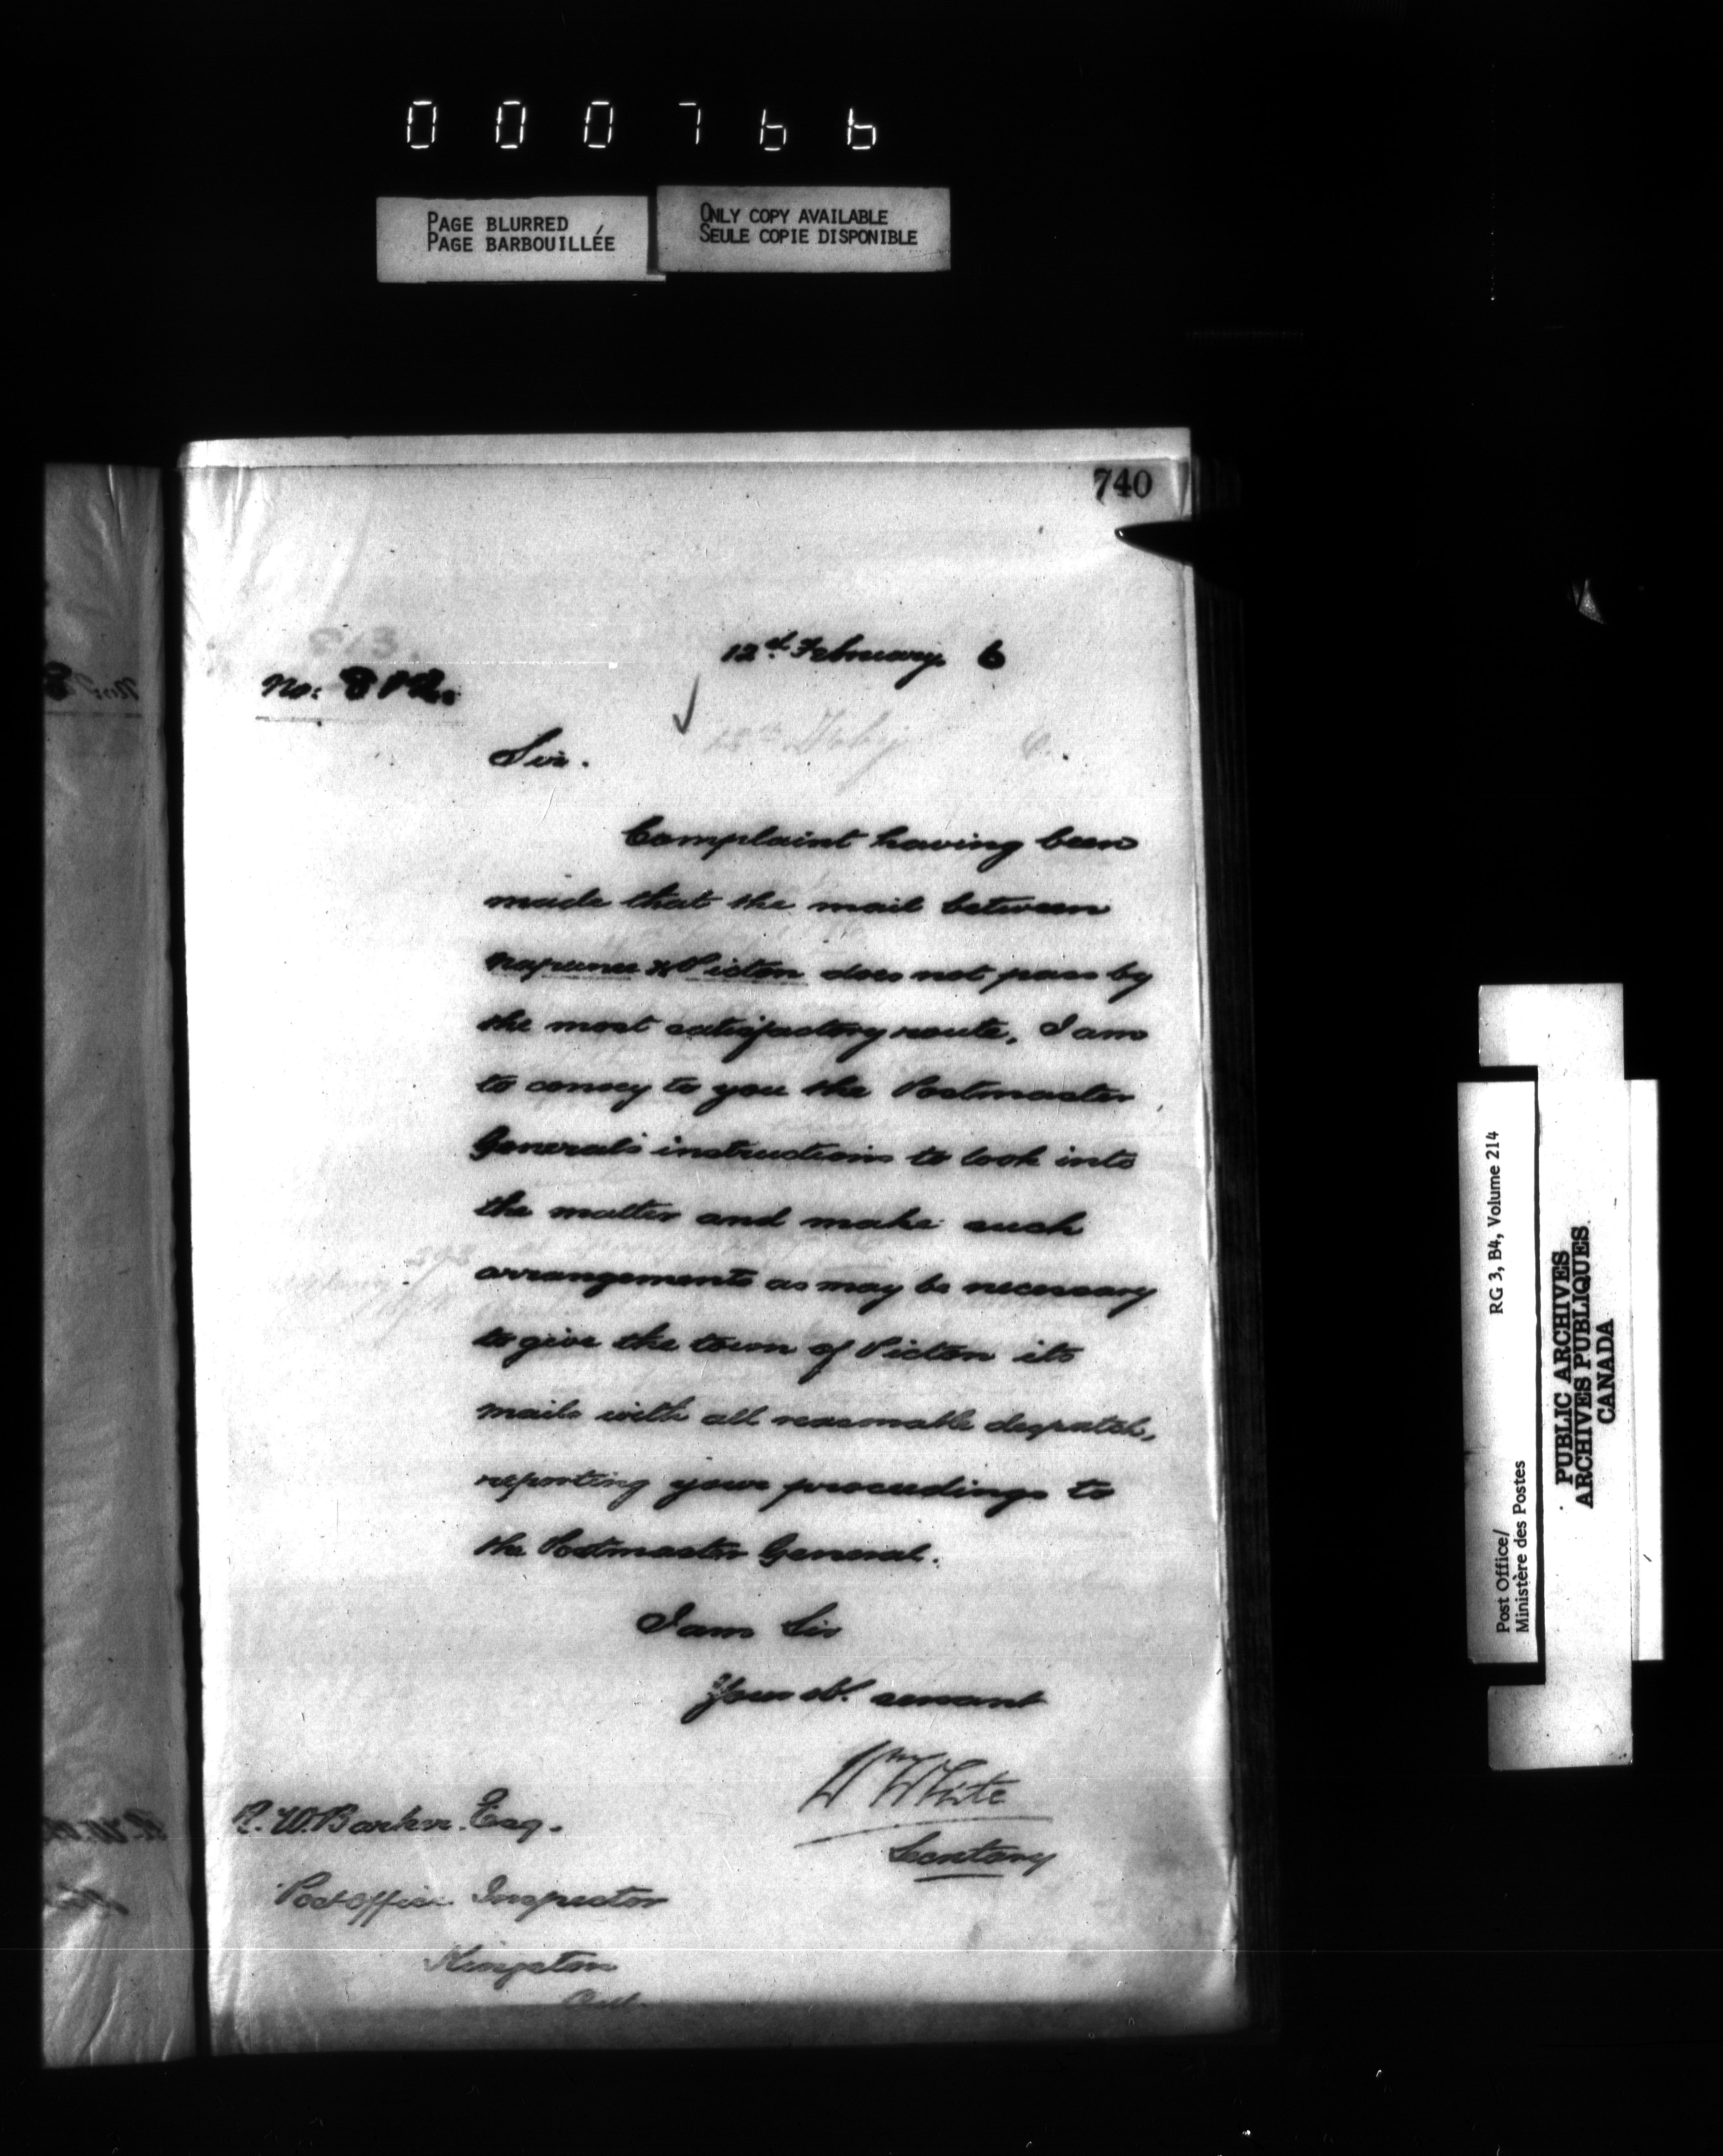 000766
PAGE BLURRED
PAGE BARBOUILLÉE
ONLY COPY AVAILABLE
SEULE COPIE DISPONIBLE
740
12th February 6
No: 812.
Sir.
Complaint having been
made that the mail between
Napanee & Picton does not pass by
the most satisfactory route, I am
to convey to you the Postmaster
General's instructions to look into
the matter and make such
arrangements as may be necessary
to give the town of Picton its
mails with all reasonable despatch,
reporting your proceedings to
the Postmaster General.
I am Sir
Your ob. servant
Wm White
Secretary
R. W. Barker. Esq.
Post Office Inspector
Kingston
Ont.
Post Office/
Ministère des Postes
RG 3, B4, Volume 214
PUBLIC ARCHIVES
ARCHIVES PUBLIQUES
CANADA